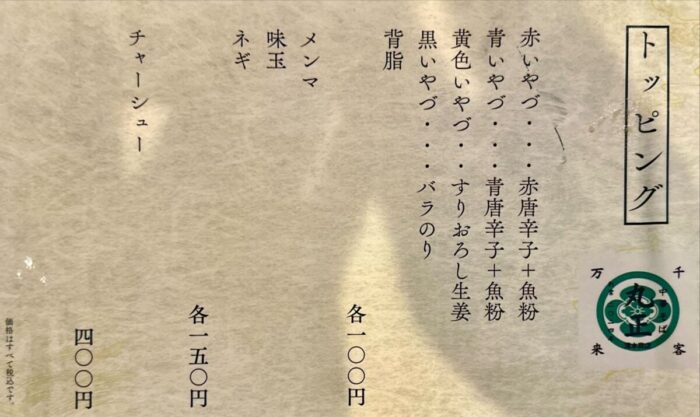 トッピング
千客万来
丸正
赤いやづ・・・赤唐辛子＋魚粉
青いやづ・・・青唐辛子＋魚粉
黄色いやづ・・すりおろし生姜
黒いやづ・・・バラのり
背脂
各一〇〇円
メンマ
味玉
ネギ
各一五〇円
チャーシュー
四〇〇円
価格はすべて税込です。